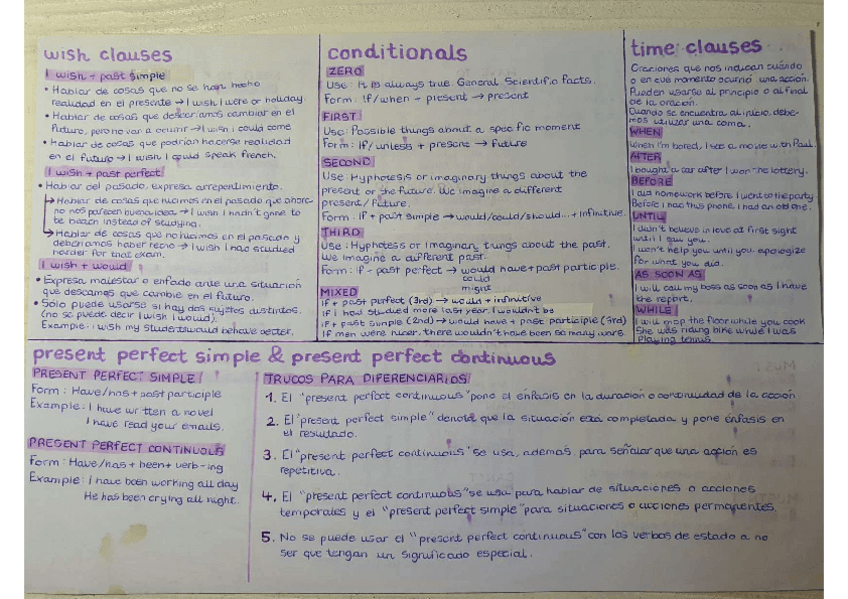 wish clauses
I wish + past simple
• Hablar de cosas que no se han hecho
realidad en el presente → I wish I were on holiday.
• Hablar de cosas que desearíamos cambiar en el
futuro, pero no van a ocurrir → I wish I could come
• Hablar de cosas que podrían hacerse realidad
en el futuro → I wish I could speak french.
I wish + past perfect
• Hablar del pasado, expresa arrepentimiento.
→ Hablar de cosas que hicimos en el pasado que ahora
no nos parecen buena idea → I wish I hadn't gone to
the beach instead of studying.
→ Hablar de cosas que no hicimos en el pasado y
deberíamos haber hecho → I wish I had studied
harder for that exam.
I wish + would
• Expresa malestar o enfado ante una situación
que deseamos que cambie en el futuro.
• Solo puede usarse si hay dos sujetos distintos.
(no se puede decir I wish I would).
Example: I wish my students would behave better.
conditionals
ZERO
Use: It is always true. General Scientific facts.
Form: If/when - present → present
FIRST
Use: Possible things about a specific moment
Form: If/unless + present → Future
SECOND
Use: Hyphotesis or imaginary things about the
present or the future. We imagine a different
present/future.
Form: If + past simple → would/could/should...+ infinitive.
THIRD
Use: Hyphotesis or Imaginary things about the past.
We imagine a different past.
Form: If - past perfect → would have + past participle.
could
might
MIXED
If + past perfect (3rd) → would + infinitive
If I had studied more last year, I wouldn't be
If + past simple (2nd) → would have + past participle (3rd)
If men were nicer, there wouldn't have been so many wars
time clauses
Oraciones que nos indican cuándo
o en qué momento ocurrió una acción.
Pueden usarse al principio o al final
de la oración.
Cuando se encuentra al inicio, debe-
mos utilizar una coma.
WHEN
When I'm bored, I see a movie with Paul.
AFTER
I bought a car after I won the lottery.
BEFORE
I did homework before I went to the party
Before I had this phone, I had an old one.
UNTIL
I didn't believe in love at first sight
until I saw you.
I won't help you until you apologize
for what you did.
AS SOON AS
I will call my boss as soon as I have
the report.
WHILE
I will mop the floor while you cook
She was riding bike while I was
playing tennis.
present perfect simple & present perfect continuous
PRESENT PERFECT SIMPLE
Form: Have/has + past participle
Example: I have written a novel
I have read your emails.
PRESENT PERFECT CONTINUOUS
Form: Have/has + been + verb-ing
Example: I have been working all day
He has been crying all night.
TRUCOS PARA DIFERENCIARLOS
1. El "present perfect continuous" pone el énfasis en la duración o continuidad de la acción
2. El "present perfect simple" denota que la situación está completada y pone énfasis en
el resultado.
3. El "present perfect continuous" se usa, además, para señalar que una acción es
repetitiva.
4. El "present perfect continuous" se usa para hablar de situaciones o acciones
temporales y el "present perfect simple" para situaciones o acciones permanentes.
5. No se puede usar el "present perfect continuous" con los verbos de estado a no
ser que tengan un significado especial.